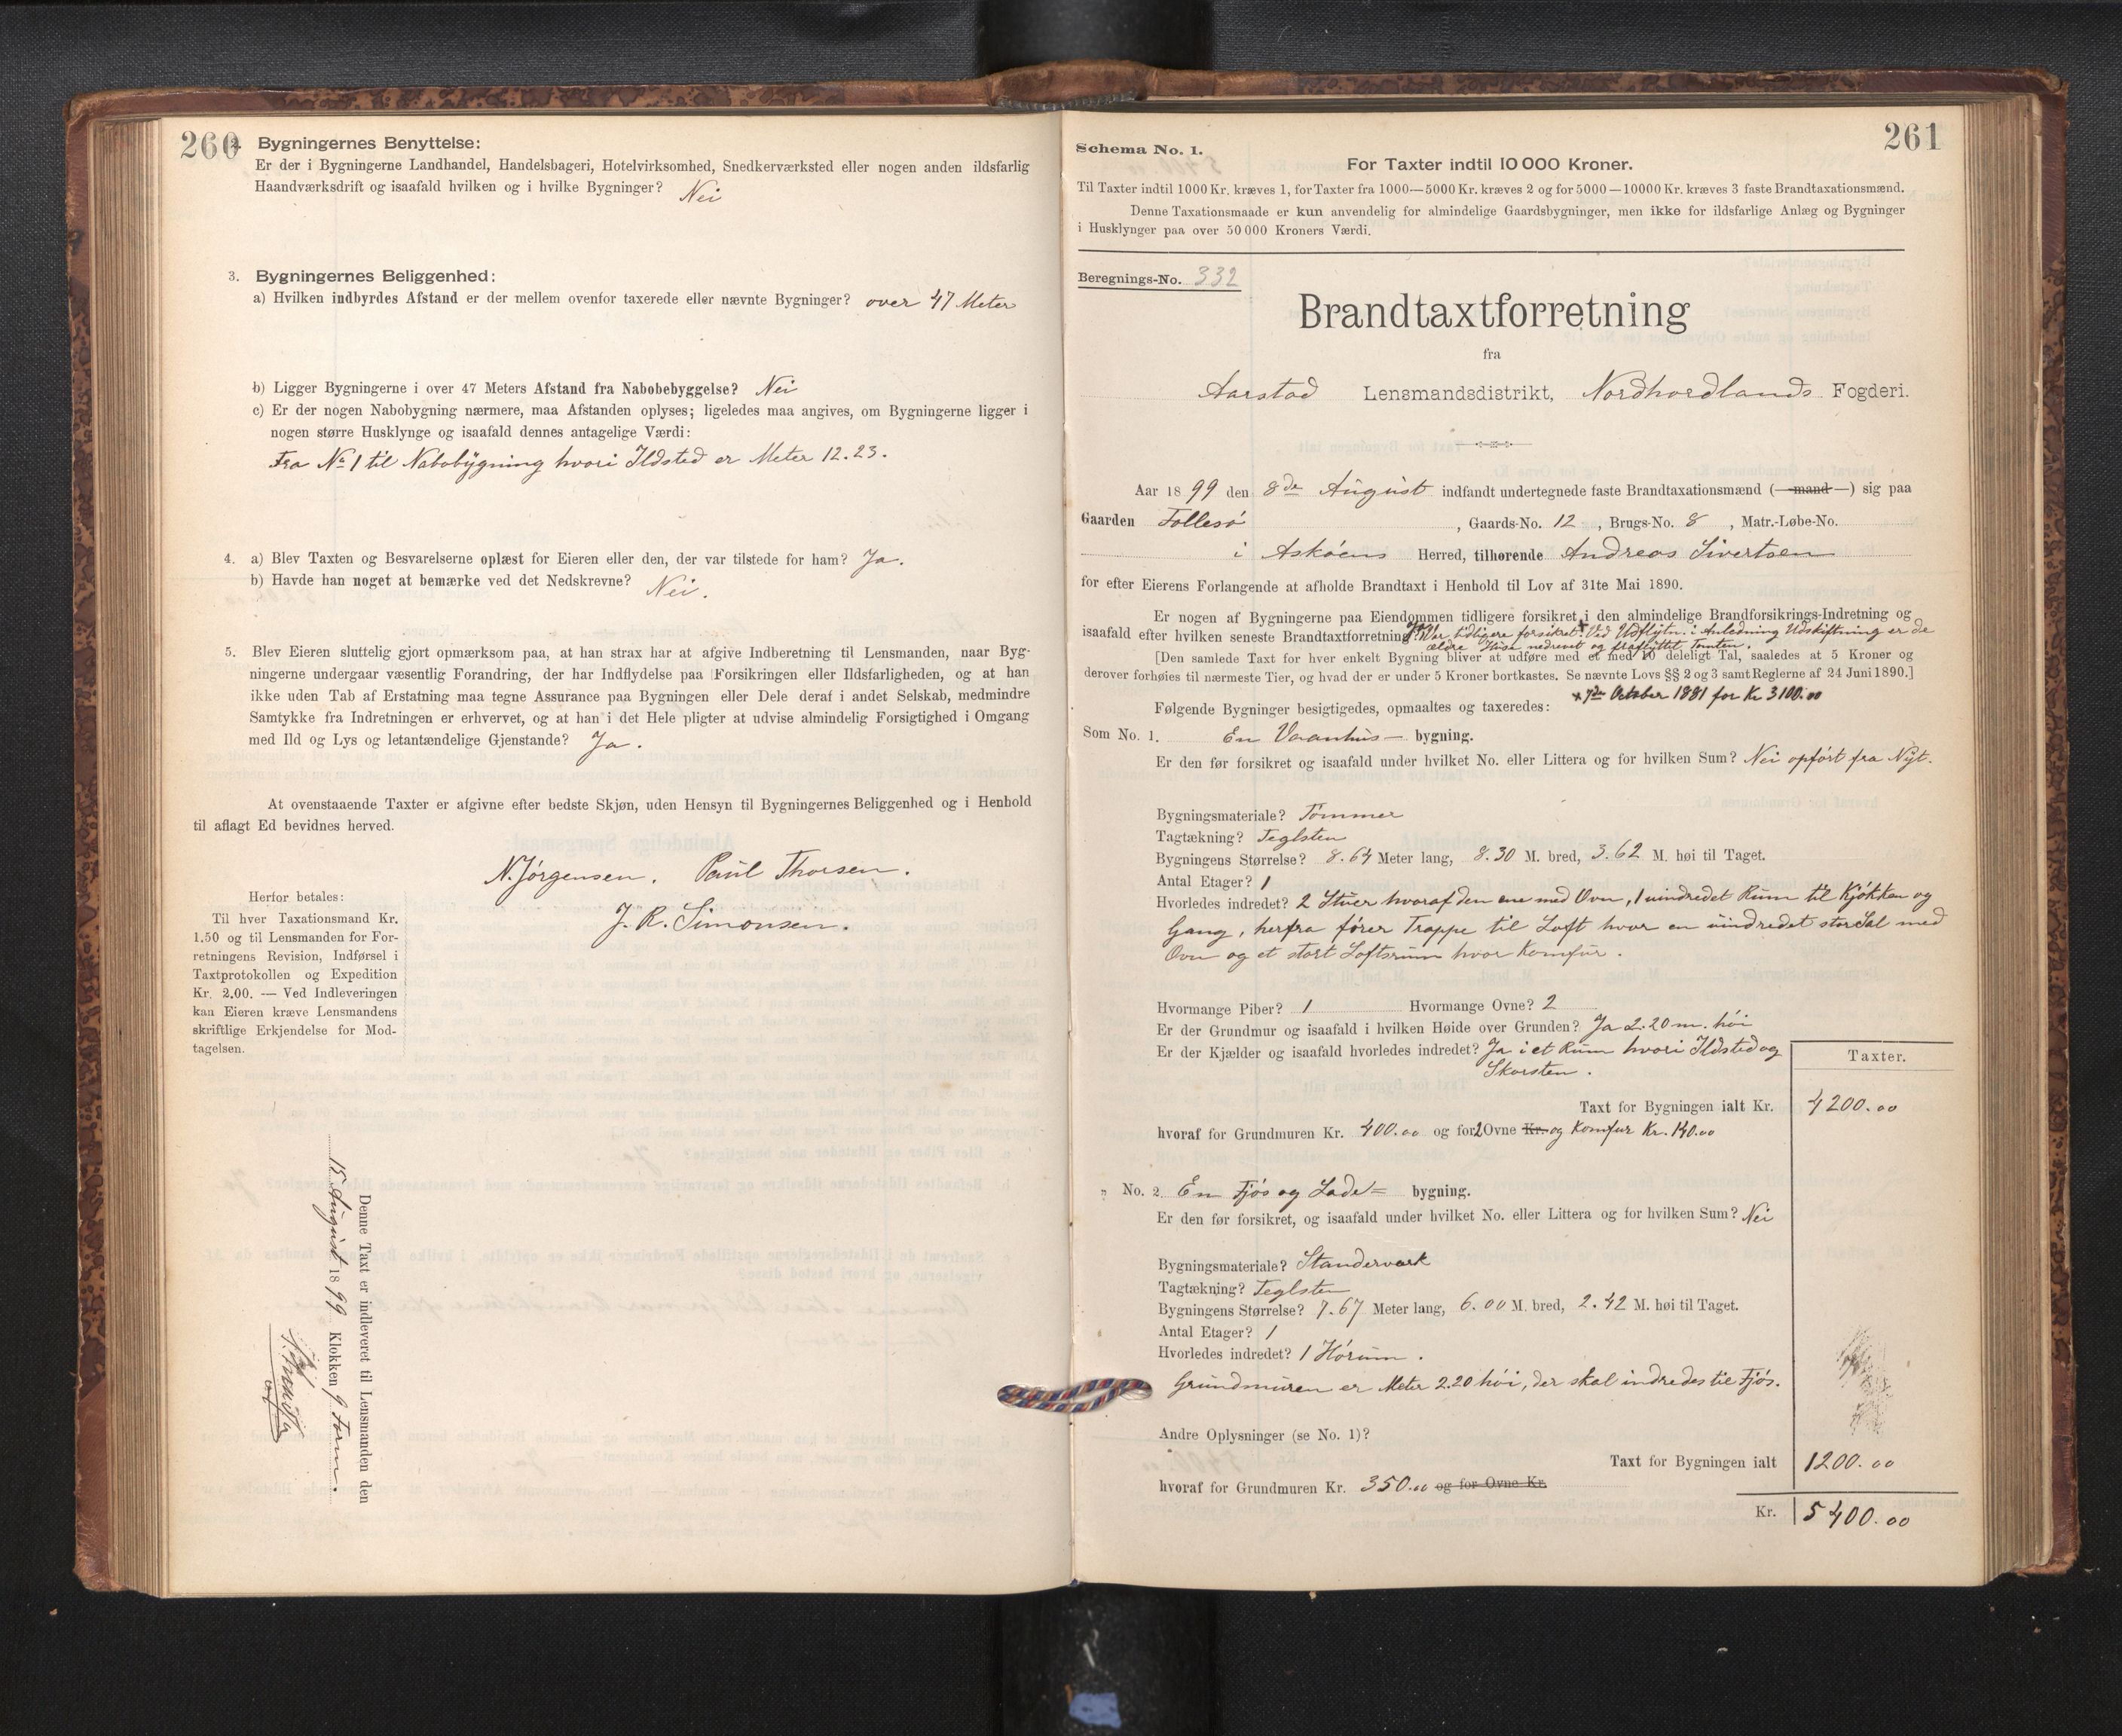 260
2. Bygningernes Benyttelse:
Er der i Bygningerne Landhandel, Handelsbageri, Hotelvirksomhed, Snedkerværksted eller nogen anden ildsfarlig
Haandværksdrift og isaafald hvilken og i hvilke Bygninger? Nei
3. Bygningernes Beliggenhed:
a) Hvilken indbyrdes Afstand er der mellem ovenfor taxerede eller nævnte Bygninger? over 47 Meter
b) Ligger Bygningerne i over 47 Meters Afstand fra Nabobebyggelse? Nei
c) Er der nogen Nabobygning nærmere, maa Afstanden oplyses; ligeledes maa angives, om Bygningerne ligger i
nogen større Husklynge og isaafald dennes antagelige Værdi:
Fra No 1 til Nabobygning hvori Ildsted er Meter 12.23.
4. a) Blev Taxten og Besvarelserne oplæst for Eieren eller den, der var tilstede for ham? Ja.
b) Havde han noget at bemærke ved det Nedskrevne? Nei.
5. Blev Eieren sluttelig gjort opmærksom paa, at han strax har at afgive Indberetning til Lensmanden, naar Byg-
ningerne undergaar væsentlig Forandring, der har Indflydelse paa Forsikringen eller Ildsfarligheden, og at han
ikke uden Tab af Erstatning maa tegne Assurance paa Bygningen eller Dele deraf i andet Selskab, medmindre
Samtykke fra Indretningen er erhvervet, og at han i det Hele pligter at udvise almindelig Forsigtighed i Omgang
med Ild og Lys og letantændelige Gjenstande? Ja.
At ovenstaaende Taxter er afgivne efter bedste Skjøn, uden Hensyn til Bygningernes Beliggenhed og i Henhold
til aflagt Ed bevidnes herved.
N. Jørgensen. Paul Thorsen.
J. R. Simonsen.
Herfor betales:
Til hver Taxationsmand Kr.
1.50 og til Lensmanden for For-
retningens Revision, Indførsel i
Taxtprotokollen og Expedition
Kr. 2.00. — Ved Indleveringen
kan Eieren kræve Lensmandens
skriftlige Erkjendelse for Mod-
tagelsen.
Denne Taxt er indleveret til Lensmanden den
15 August 1899 Klokken 9 Form.
261
Schema No. 1.
For Taxter indtil 10 000 Kroner.
Til Taxter indtil 1000 Kr. kræves 1, for Taxter fra 1000—5000 Kr. kræves 2 og for 5000—10000 Kr. kræves 3 faste Brandtaxationsmænd.
Denne Taxationsmaade er kun anvendelig for almindelige Gaardsbygninger, men ikke for ildsfarlige Anlæg og Bygninger
i Husklynger paa over 50 000 Kroners Værdi.
Beregnings-No. 332
Brandtaxtforretning
fra
Aarstad Lensmandsdistrikt, Nordhordlands Fogderi.
Aar 1899 den 8de August indfandt undertegnede faste Brandtaxationsmænd (—mand—) sig paa
Gaarden Follesø, Gaards-No. 12, Brugs-No. 8, Matr.-Løbe-No.
i Askøens Herred, tilhørende Andreas Sivertsen
for efter Eierens Forlangende at afholde Brandtaxt i Henhold til Lov af 31te Mai 1890.
Er nogen af Bygningerne paa Eiendommen tidligere forsikret i den almindelige Brandforsikrings-Indretning og
isaafald efter hvilken seneste Brandtaxtforretning? Var tidligere forsikret x. Ved Udflytn. i Anledning Udskiftning er de
ældre Huse nedrevet og fraflyttet Tomten.
[Den samlede Taxt for hver enkelt Bygning bliver at udføre med et med 10 deleligt Tal, saaledes at 5 Kroner og
derover forhøies til nærmeste Tier, og hvad der er under 5 Kroner bortkastes. Se nævnte Lovs §§ 2 og 3 samt Reglerne af 24 Juni 1890.]
x 7de October 1881 for Kr 3100.00
Følgende Bygninger besigtigedes, opmaaltes og taxeredes:
Som No. 1. En Vaanhus- bygning.
Er den før forsikret og isaafald under hvilket No. eller Littera og for hvilken Sum? Nei opført fra Nyt.
Bygningsmateriale? Tømmer
Tagtækning? Teglsten
Bygningens Størrelse? 8.64 Meter lang, 8.30 M. bred, 3.62 M. høi til Taget.
Antal Etager? 1
Hvorledes indredet? 2 Stuer hvoraf den ene med Ovn, 1 uindredet Rum til Kjøkken og
Gang, herfra fører Trappe til Loft hvor en uindredet stor Sal med
Ovn og et stort Loftsrum hvor Komfur.
Hvormange Piber? 1 Hvormange Ovne? 2
Er der Grundmur og isaafald i hvilken Høide over Grunden? Ja 2.20 m. høi
Er der Kjælder og isaafald hvorledes indredet? Ja i et Rum hvori Ildsted og
Skorsten.
Taxter.
Taxt for Bygningen ialt Kr. 4200.00
hvoraf for Grundmuren Kr. 400.00 og for 2 Ovne Kr. og Komfur Kr. 140.00
" No. 2 En Fjøs og Lade= bygning.
Er den før forsikret, og isaafald under hvilket No. eller Littera og for hvilken Sum? Nei
Bygningsmateriale? Standerværk
Tagtækning? Teglsten
Bygningens Størrelse? 7.67 Meter lang, 6.00 M. bred, 2.42 M. høi til Taget.
Antal Etager? 1
Hvorledes indredet? 1 Hørum.
Grundmuren er Meter 2.20 høi, der skal indredes til Fjøs.
Andre Oplysninger (se No. 1)?
Taxt for Bygningen ialt 1200.00
hvoraf for Grundmuren Kr. 350.00 og for Ovne Kr.
Kr. 5400.00